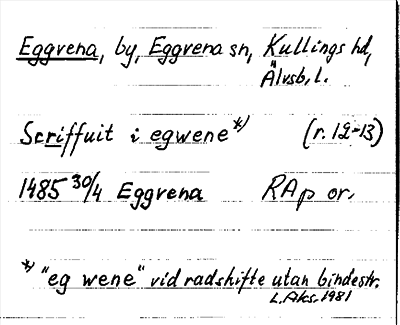 Eggvena, by, Eggvena sn, Kullings hd,
Älvsb. l.
Scriffuit i egwene*) (r. 12-13)
1485 30/4 Eggvena RAp or.
*) "eg wene" vid radskifte utan bindestr.
L. Aks. 1981